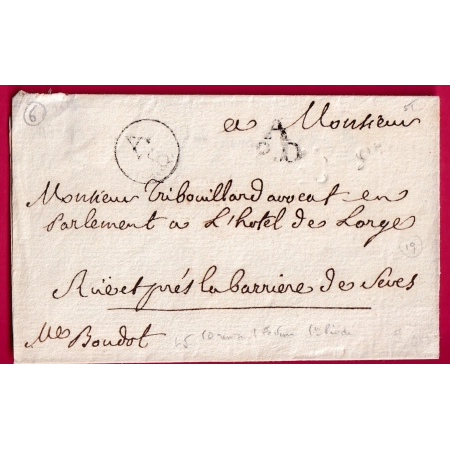 6
a Monsieur
A
P.D
Monsieur Tribouillard avocat en
Parlement a L'hotel de Lorge
19
Rüe et prés la barriere de Seves
Me Boudot